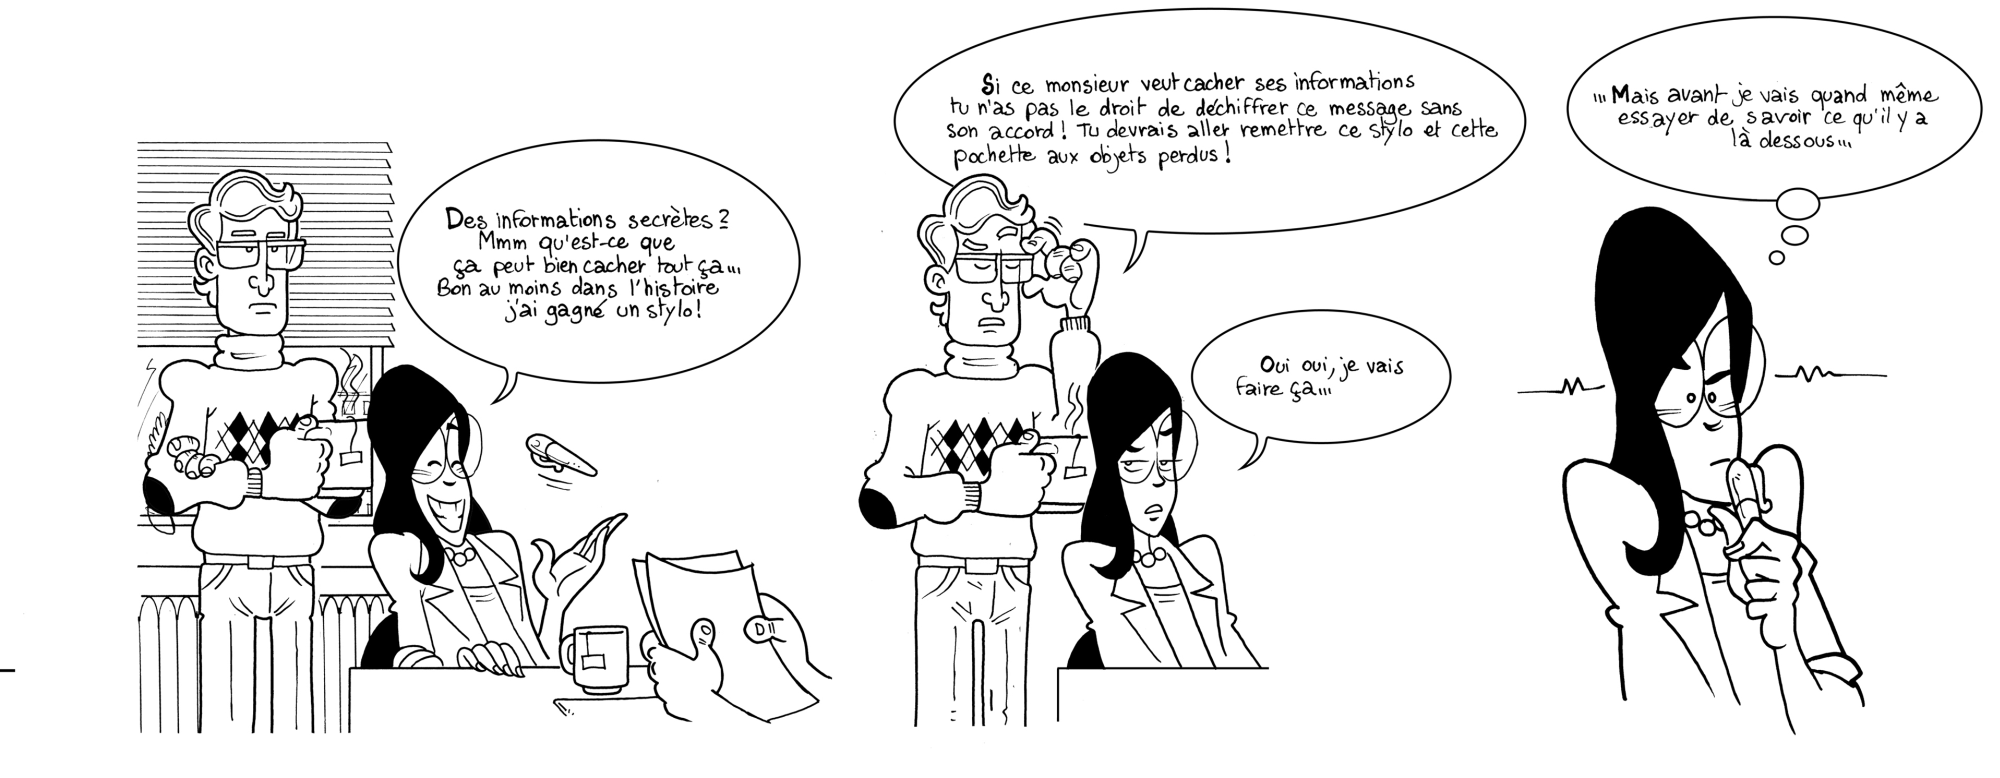 Des informations secrètes ?
Mmm qu'est-ce que
ça peut bien cacher tout ça...
Bon au moins dans l'histoire
j'ai gagné un stylo !
Si ce monsieur veut cacher ses informations
tu n'as pas le droit de déchiffrer ce message sans
son accord ! Tu devrais aller remettre ce stylo et cette
pochette aux objets perdus !
Oui oui, je vais
faire ça...
... Mais avant je vais quand même
essayer de savoir ce qu'il y a
là dessous...